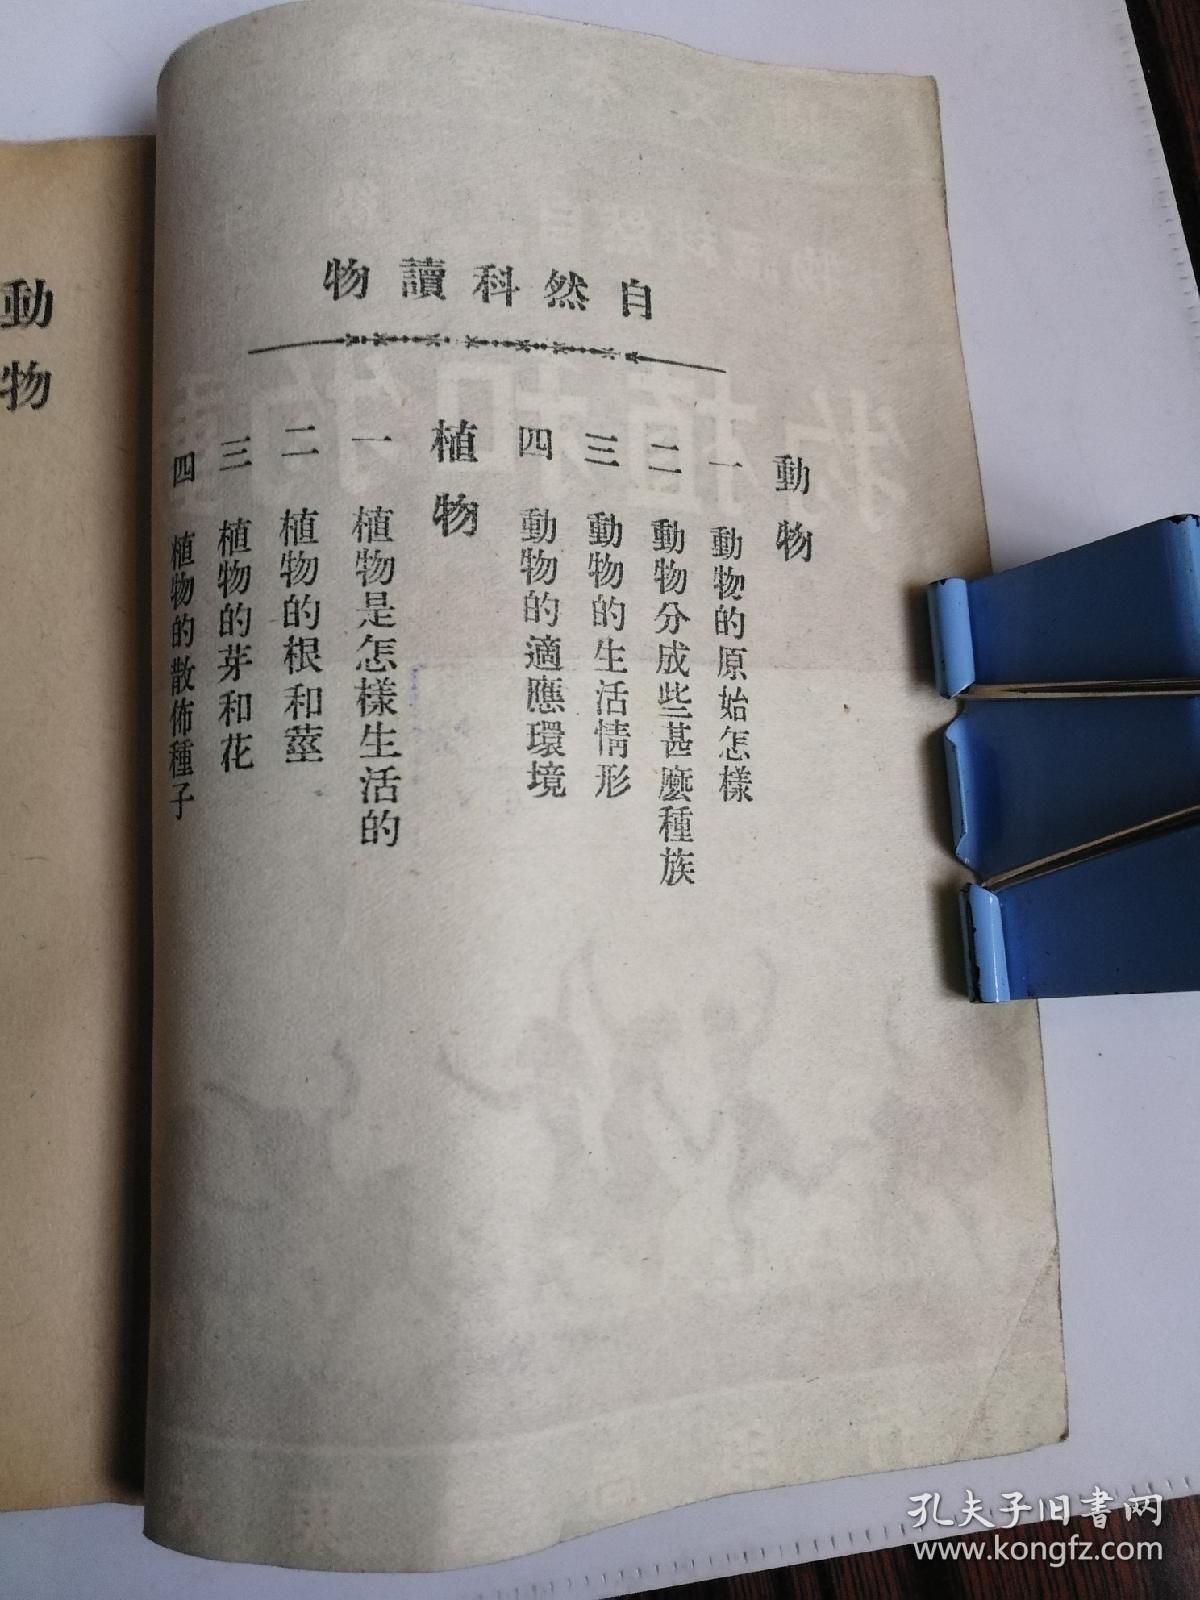 自然科讀物
動物
一 動物的原始怎樣
二 動物分成些甚麼種族
三 動物的生活情形
四 動物的適應環境
植物
一 植物是怎樣生活的
二 植物的根和莖
三 植物的芽和花
四 植物的散佈種子
動物
孔夫子旧书网
www.kongfz.com